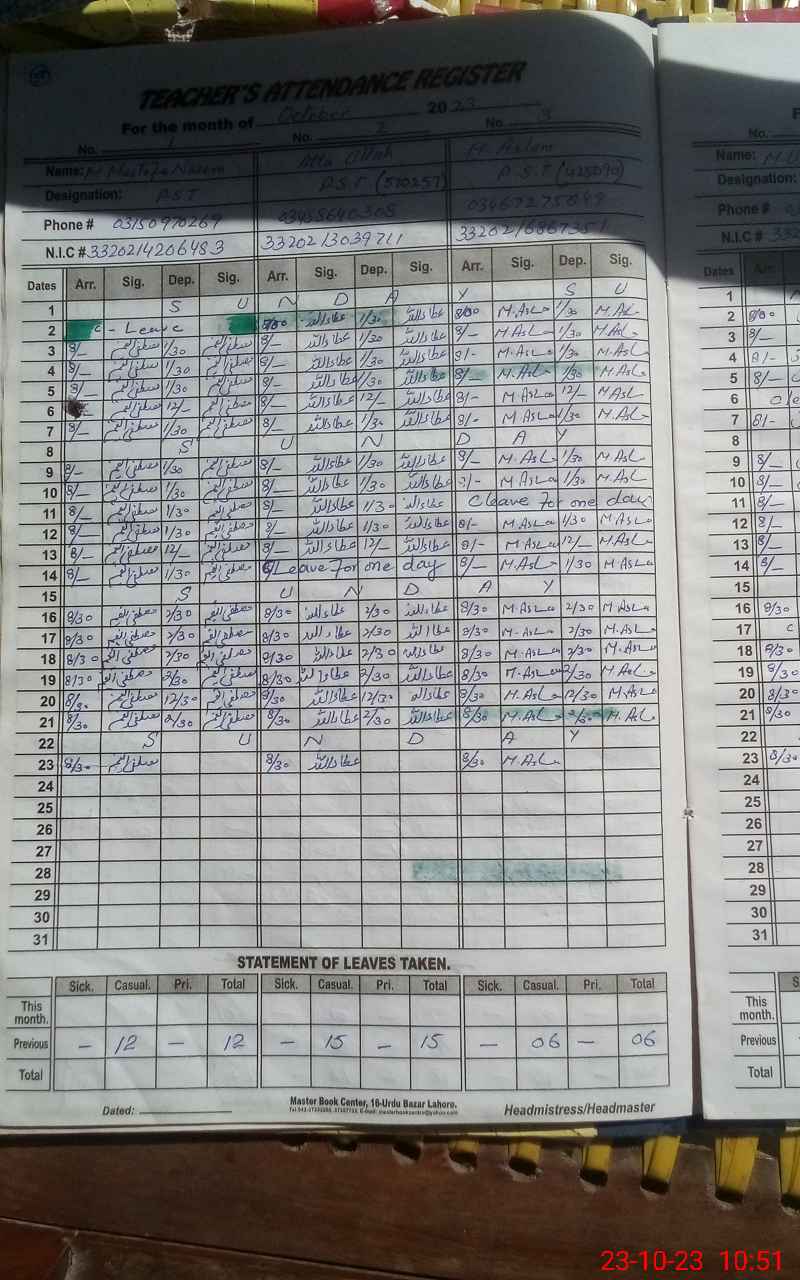 TEACHER'S ATTENDANCE REGISTER
For the month of October 2023
No. 1 No. 2 No. 3
Name: M Mustafa Naeem Atta Ullah M. Aslam
Designation: P.S.T P.S.T (510257) P.S.T (425090)
Phone # 03150970269 03455640305 03467275049
N.I.C # 3320214206483 3320213039711 3320216867351
Dates Arr. Sig. Dep. Sig. Arr. Sig. Dep. Sig. Arr. Sig. Dep. Sig.
1 S U N D A Y S U
2 C - Leave 8/00 عطاءاللہ 1/30 عطاءاللہ 8/00 M.Asla 1/30 M.Asl
3 8/- مصطفٰی نعیم 1/30 مصطفٰی نعیم 8/- عطاءاللہ 1/30 عطاءاللہ 8/- M.Asla 1/30 M.Asla
4 8/- مصطفٰی نعیم 1/30 مصطفٰی نعیم 8/- عطاءاللہ 1/30 عطاءاللہ 8/- M.Asla 1/30 M.Asla
5 8/- مصطفٰی نعیم 1/30 مصطفٰی نعیم 8/- عطاءاللہ 1/30 عطاءاللہ 8/- M.Asla 1/30 M.Asla
6 مصطفٰی نعیم 12/- مصطفٰی نعیم 8/- عطاءاللہ 12/- عطاءاللہ 8/- M Asla 12/- M.Asl
7 8/- مصطفٰی نعیم 1/30 مصطفٰی نعیم 8/- عطاءاللہ 1/30 عطاءاللہ 8/- M.Asla 1/30 M.Asla
8 S U N D A Y
9 8/- مصطفٰی نعیم 1/30 مصطفٰی نعیم 8/- عطاءاللہ 1/30 عطاءاللہ 8/- M.Asla 1/30 M.Asla
10 8/- مصطفٰی نعیم 1/30 مصطفٰی نعیم 8/- عطاءاللہ 1/30 عطاءاللہ 8/- M.Asla 1/30 M.Asla
11 8/- مصطفٰی نعیم 1/30 مصطفٰی نعیم 8/- عطاءاللہ 1/30 عطاءاللہ Cleave for one day
12 8/- مصطفٰی نعیم 1/30 مصطفٰی نعیم 8/- عطاءاللہ 1/30 عطاءاللہ 8/- M Asla 1/30 M.Asla
13 8/- مصطفٰی نعیم 12/- مصطفٰی نعیم 8/- عطاءاللہ 12/- عطاءاللہ 8/- M.Asla 12/- M.Asla
14 8/- مصطفٰی نعیم 1/30 مصطفٰی نعیم Cleave for one day 8/- M.Asla 1/30 M.Asla
15 S U N D A Y
16 8/30 مصطفٰی نعیم 2/30 مصطفٰی نعیم 8/30 عطاءاللہ 2/30 عطاءاللہ 8/30 M.Asla 2/30 M Asla
17 8/30 مصطفٰی نعیم 2/30 مصطفٰی نعیم 8/30 عطاءاللہ 2/30 عطاءاللہ 8/30 M-Asla 2/30 M.Asla
18 8/30 مصطفٰی نعیم 2/30 مصطفٰی نعیم 8/30 عطاءاللہ 2/30 عطاءاللہ 8/30 M.Asla 2/30 M.Asla
19 8/30 مصطفٰی نعیم 2/30 مصطفٰی نعیم 8/30 عطاءاللہ 2/30 عطاءاللہ 8/30 M.Asla 2/30 M.Asla
20 8/30 مصطفٰی نعیم 12/30 مصطفٰی نعیم 8/30 عطاءاللہ 12/30 عطاءاللہ 8/30 M.Asla 12/30 M.Asla
21 8/30 مصطفٰی نعیم 2/30 مصطفٰی نعیم 8/30 عطاءاللہ 2/30 عطاءاللہ 8/30 M.Asla 2/30 M.Asl
22 S U N D A Y
23 8/30 مصطفٰی نعیم 8/30 عطاءاللہ 8/30 M.Asla
24
25
26
27
28
29
30
31
STATEMENT OF LEAVES TAKEN.
Sick. Casual. Pri. Total Sick. Casual. Pri. Total Sick. Casual. Pri. Total
This month.
Previous - 12 - 12 - 15 - 15 - 06 - 06
Total
Dated:
Master Book Center, 16-Urdu Bazar Lahore.
Headmistress/Headmaster
No.
Name: M.U
Designation:
Phone #
N.I.C # 332
Dates Arr.
1
2 8/00
3 8/-
4 8/-
5 8/-
6
7 8/-
8
9 8/-
10 8/-
11 8/-
12 8/-
13 8/-
14 8/-
15
16 8/30
17 C
18 8/30
19 8/30
20 8/30
21 8/30
22
23 8/30
24
25
26
27
28
29
30
31
This month.
Previous
Total
Dated:
23-10-23 10:51